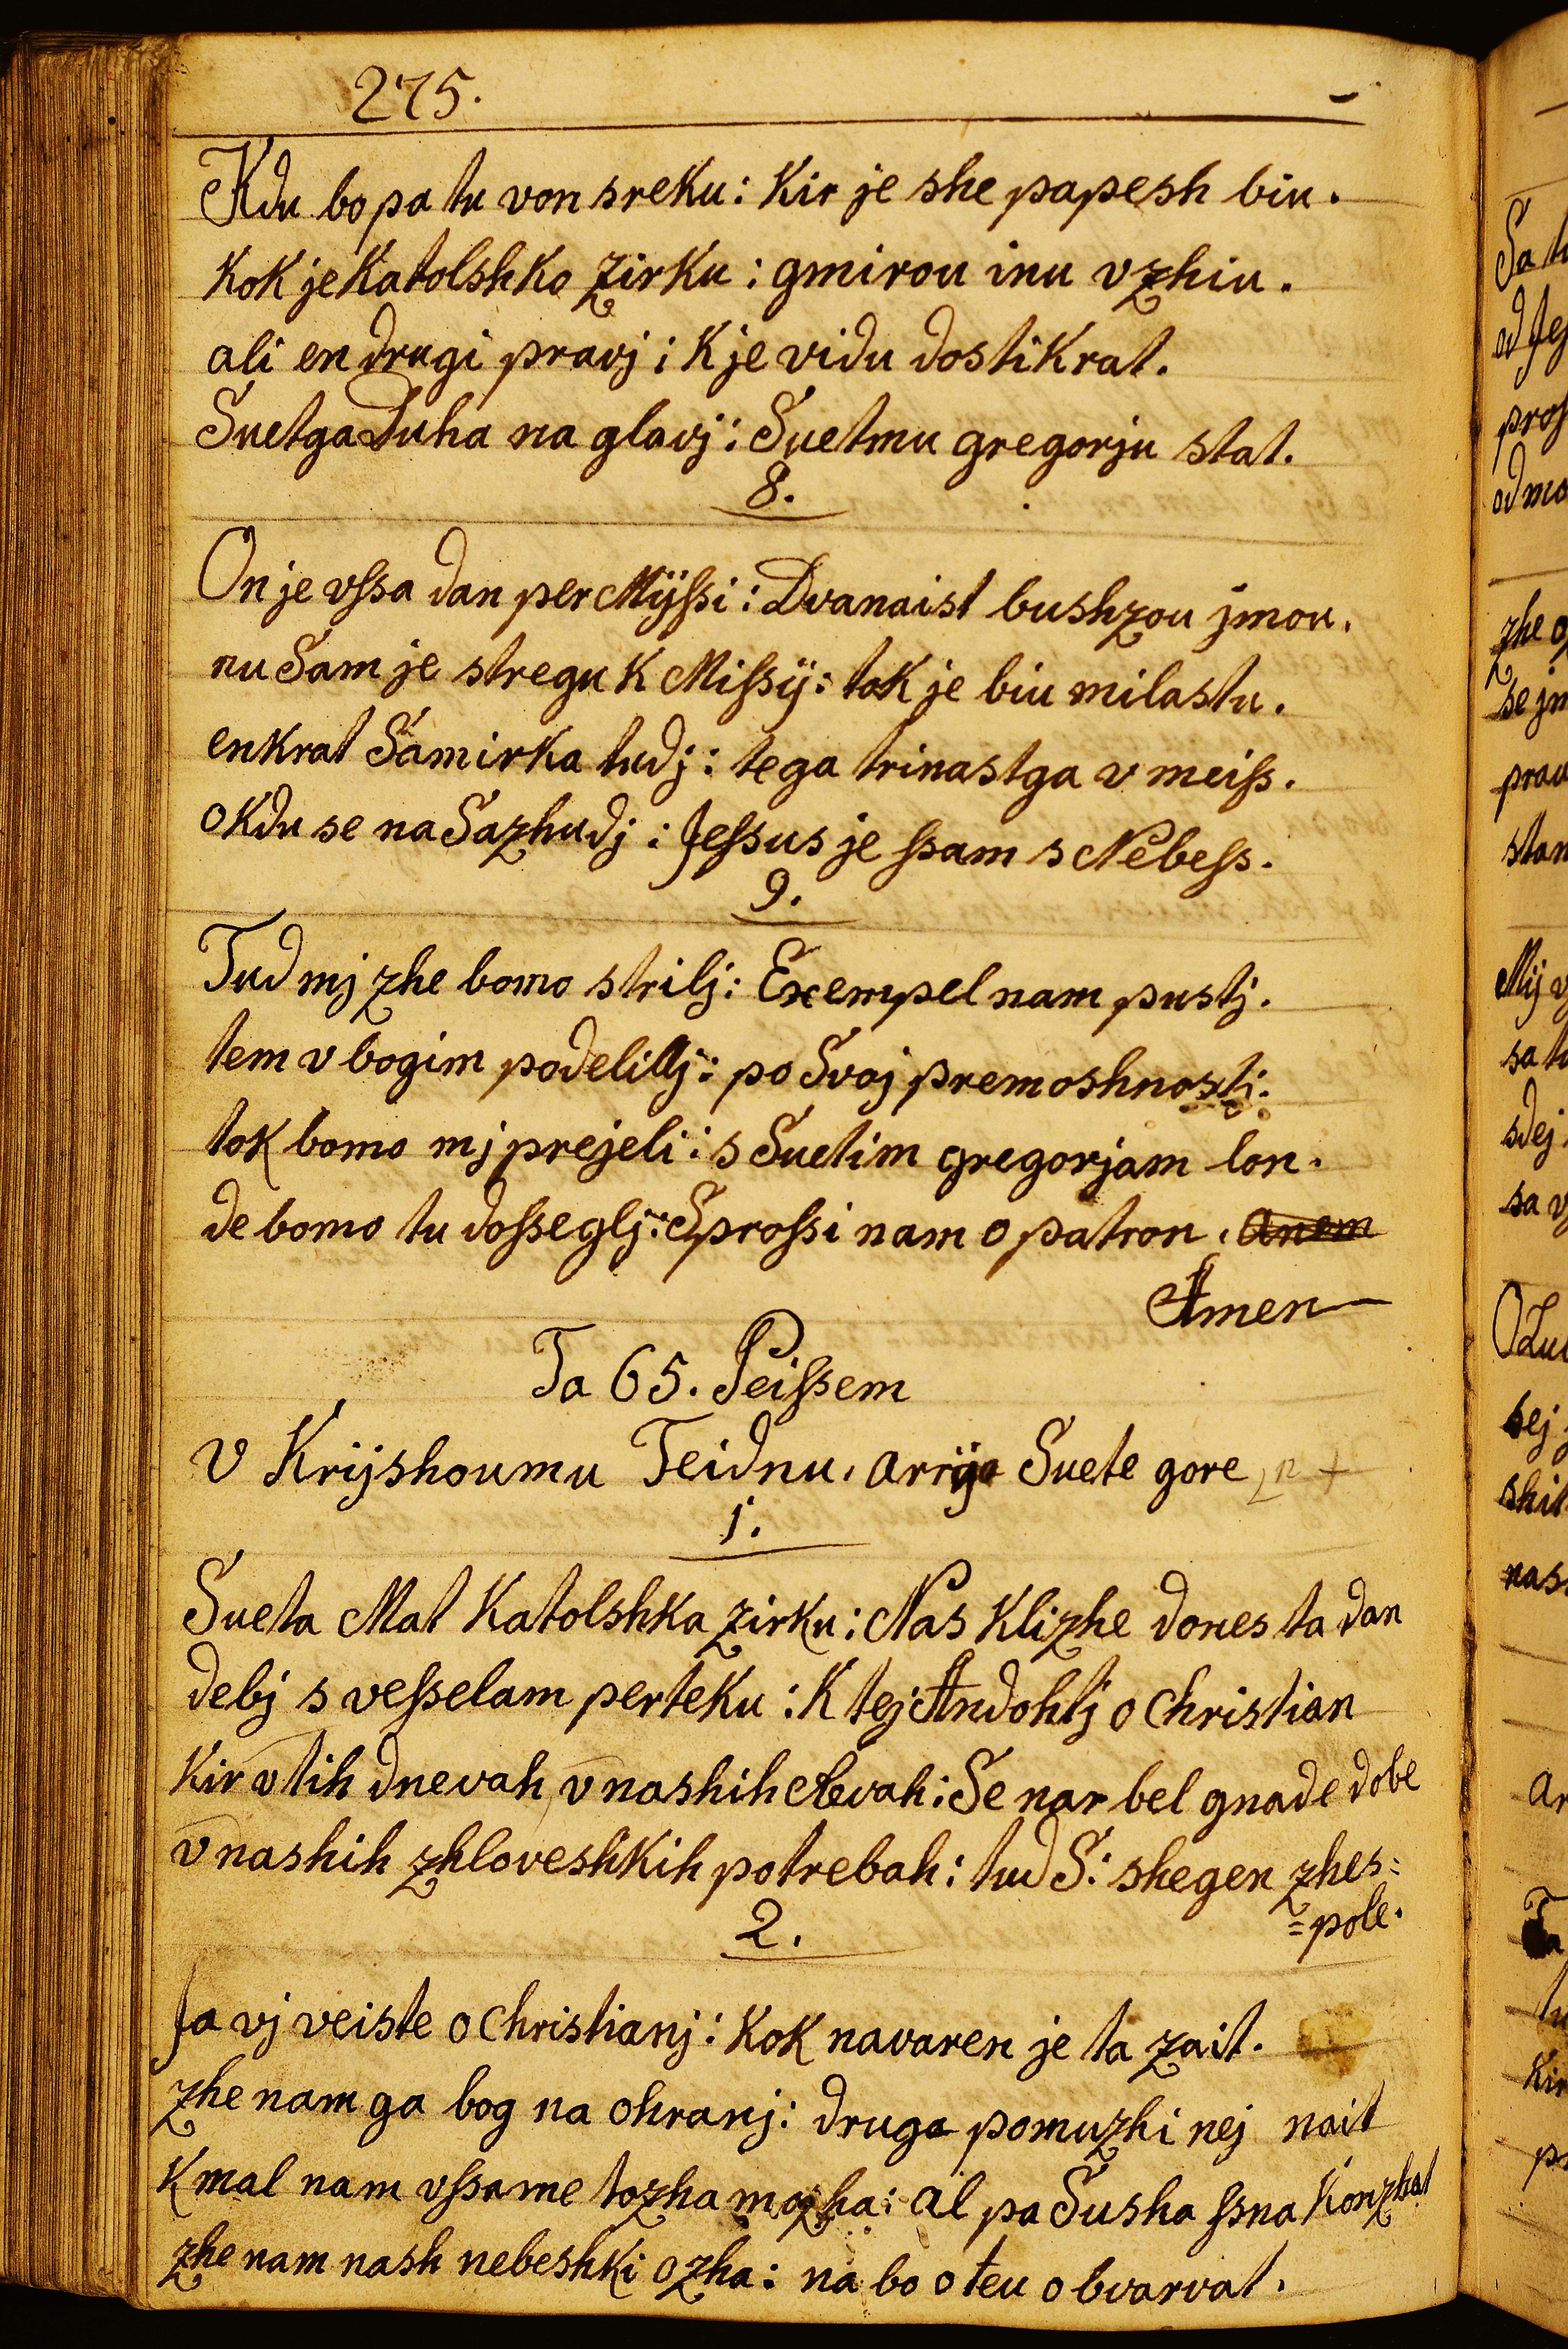 275.
Kdu bo pa tu von sreku: Kir je she papesh biu.
Kok je Katolshko zirku: gmirou inu vzhiu.
ali en drugi pravj: K je vidu dostikrat.
Suetga Duha na glavj: Suetmu gregorju stat.
8.
On je vſsa dan per Mÿſsi: Dvanaist bushzou jmou.
nu Sam je stregu K Miſsÿ: tok je biu milastu.
enkrat Samirka tudj: tega trinastga v meiſs.
oKdu se na Sazhudj: Jeſsus je ſsam s Nebeſs.
9.
Tud mj zhe bomo strilj: Exempel nam pustj.
tem vbogim podelillj: po Svoj premoshnostj:
tok bomo mj prejeli: s Suetim gregorjam lon.
de bomo tu doſseglj: Sproſsi nam o patron. anem
Amen
Ta 65. Peiſsem
V Krijshoumu Teidnu. arija Suete gore
1.
Sueta Mat Katolshka zirku: Nas Klizhe dones ta dan
debj s veſselam perteku: K tej Andohtj o Christian
Kir v tih dnevah, v nashih: Se nar bel gnade dobe
v nashih zhloveshkih potrebah: tud S: shegen zhes=
=pole.
2.
Ja vj veiste o Christianj: Kok navaren je ta zait.
zhe nam ga bog na ohranj: druga pomuzhi nej nait
K mal nam vſsame tozha: al pa Susha ſsna Konzhat
zhe nam nash nebeshki ozha: na bo oteu obvarvat.